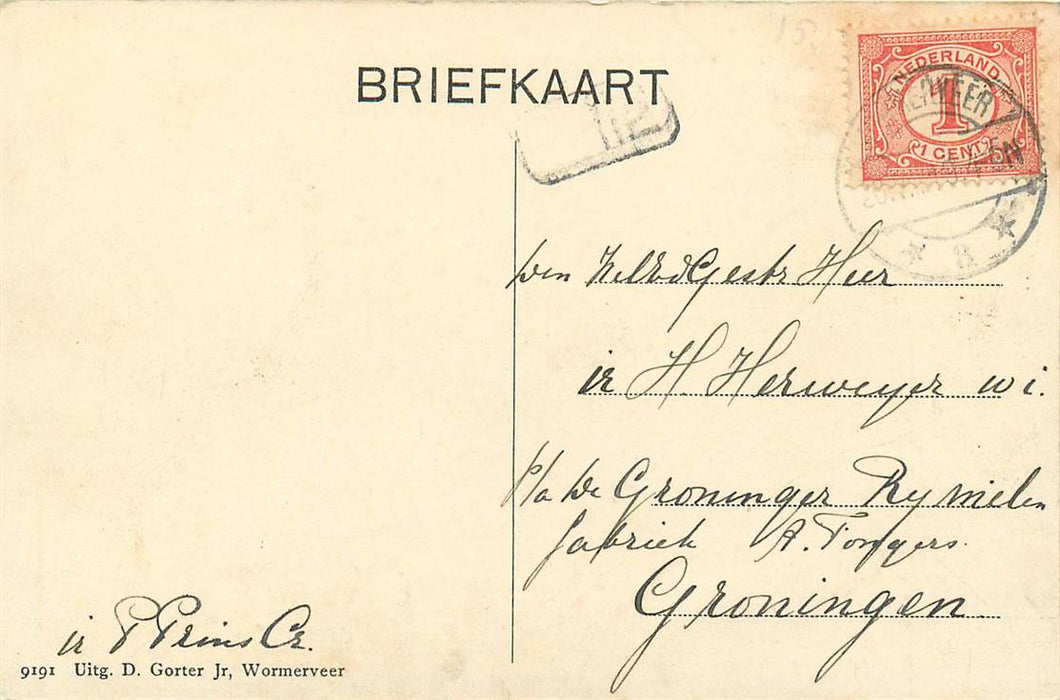 BRIEFKAART
NEDERLAND
1
1 CENT
Den WelEdGestr Heer
ir H. Herweyer wi.
P/a De Groninger Rywielen
fabriek A. Fongers.
Groningen
ir P Prins Cz.
9191 Uitg. D. Gorter Jr, Wormerveer